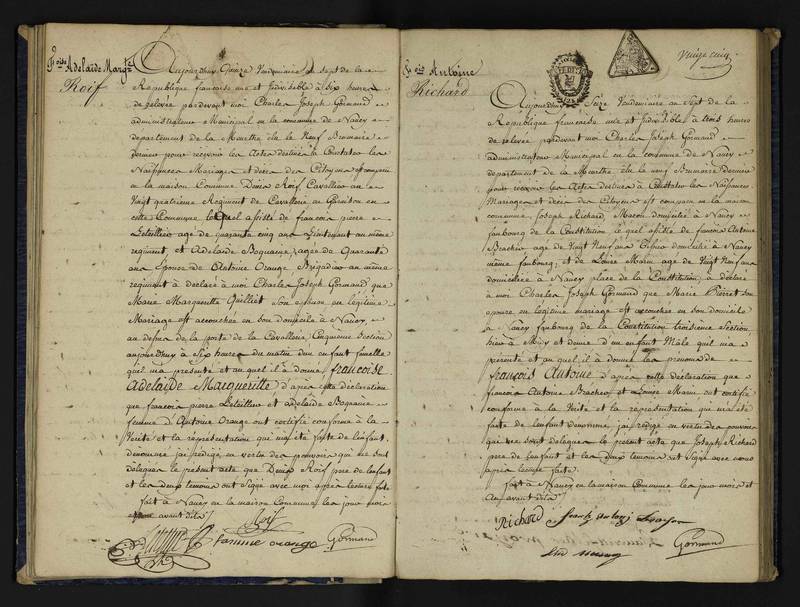 f.oise Adelaïde Margte
Roif
Aujourdhuy Quinze Vendemiaire an Sept de la
Republique française une et Indivisible à Six heures
de relevée pardevant moi Charles Joseph Gormand
administrateur Municipal en la commune de Nancy
departement de la Meurthe élu le Neuf Brumaire
dernier pour recevoir les Actes destinés à Constater les
Naissances Mariages et deces des Citoyens est comparu
en la maison Commune Denis Roif Cavallier au
Vingt quatrieme Regiment de Cavallerie en Garnison en
cette Commune lequel assisté de francois pierre
Letuillier age de quarante cinq ans Lieutenant au même
regiment, et Adelaïde Boquaire, agée de Quarante
ans épouse de Antoine Orange Brigadier au même
regiment à declaré à moi Charles Joseph Gormand que
Marie Marguerite Quilliet son epouse en légitime
Mariage est accouchée en son domicile à Nancy,
au depus de la porte de la Cavallerie Cinquieme Section
aujourdhuy à Six heures du matin d'un enfant femelle
quil ma présenté et au quel il à donné francoise
Adelaïde Marguerite d'après cette déclaration
que francois pierre Letuillier et adelaïde Boquaire
femme d'Antoine Orange ont certifié conforme à la
Verité et la représentation qui ma été faite de l'enfant
denommé jai redigé en vertu des pouvoirs qui me sont
delegués le present acte que Denis Roif pere de l'enfant
et les deux temoins ont Signé avec moi après lecture faite
fait à Nancy en la maison Commune les jour mois
et an avant dits
Roif
famme orange Gormand
Vingt cinq
f.ois Antoine
Richard
Aujourdhuy Seize Vendemiaire an Sept de la
Republique française une et Indivisible à trois heures
de relevée pardevant moi Charles Joseph Gormand
administrateur Municipal en la commune de Nancy
departement de la Meurthe élu le neuf Brumaire Dernier
pour recevoir les Actes destinés à Constater les Naissances
Mariages et deces des Citoyens est comparu en la maison
commune, Joseph Richard Macon domicilié à Nancy
faubourg de la Constitution le quel assisté de francois Antoine
Bracher age de Vingt Neuf ans domicilié à Nancy
même faubourg, et de Louise Marin age de Vingt Neuf ans
domiciliée à Nancy place de la Constitution, à déclaré
à moi Charles Joseph Gormand que Marie Pierret son
epouse en legitime mariage est accouchée en son domicile
à Nancy faubourg de la Constitution troisieme Section,
hier à Midy et demie d'un enfant Mâle quil ma
présenté et au quel il à donné les prénoms de
françois Antoine d'après cette déclaration que
francois Antoine Bracher et Louise Marin ont certifié
conforme à la Verité et la représentation qui ma été
faite de l'enfant denommé, jai redigé en vertu des pouvoirs
qui me sont delegués le present acte que Joseph Richard
pere de l'enfant et les deux temoins ont Signé avec moi
après lecture faite
fait à Nancy en la maison Commune les jour mois et
an avant dits
Richard
Gormand